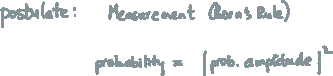 postulate: Measurement (Born's Rule)
probability = [prob. amplitude]²